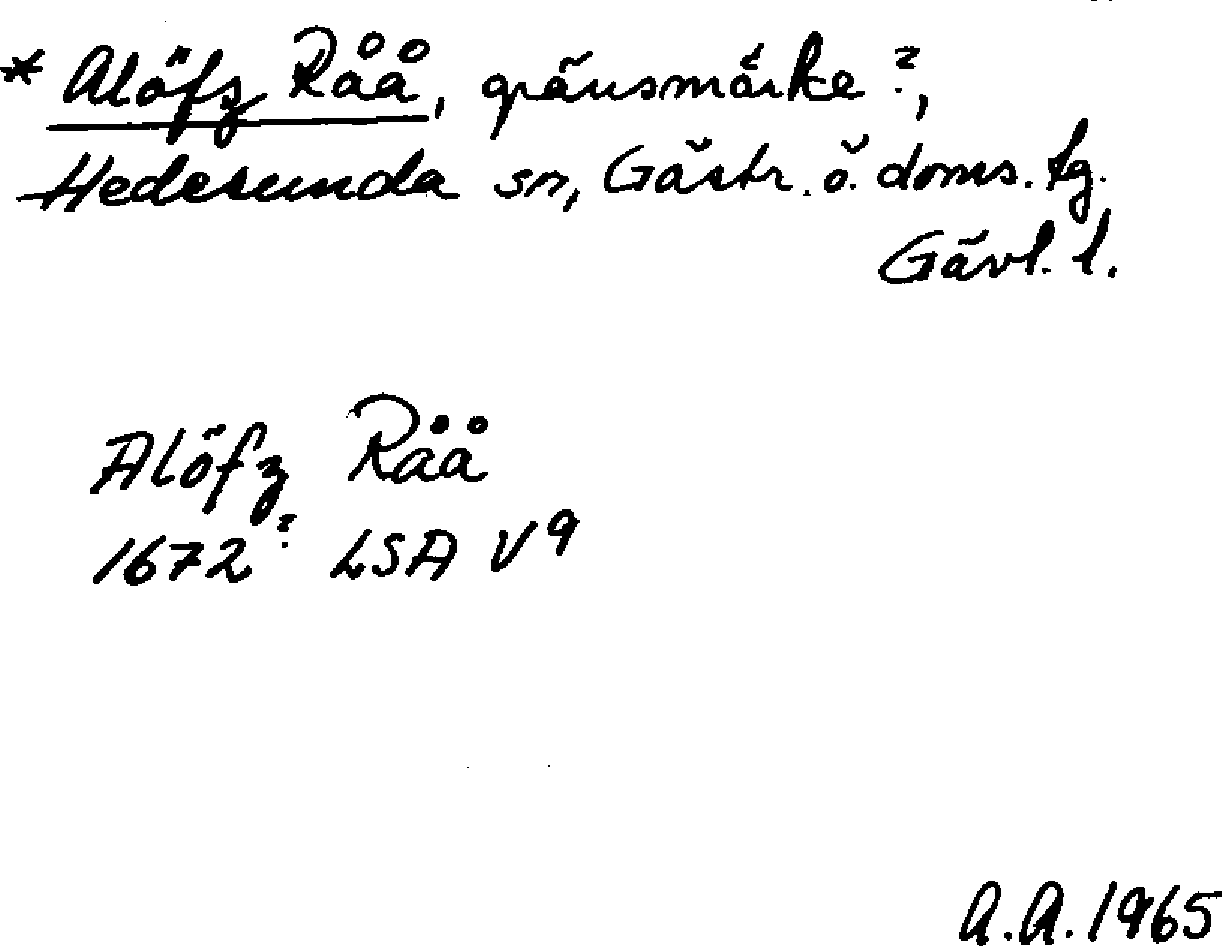 * Alöfz Råå, gränsmärke?,
Hedesunda sn, Gästr. ö. doms. tg.
Gävl. l.
Alöfz Råå
1672? LSA V9
A.A. 1965